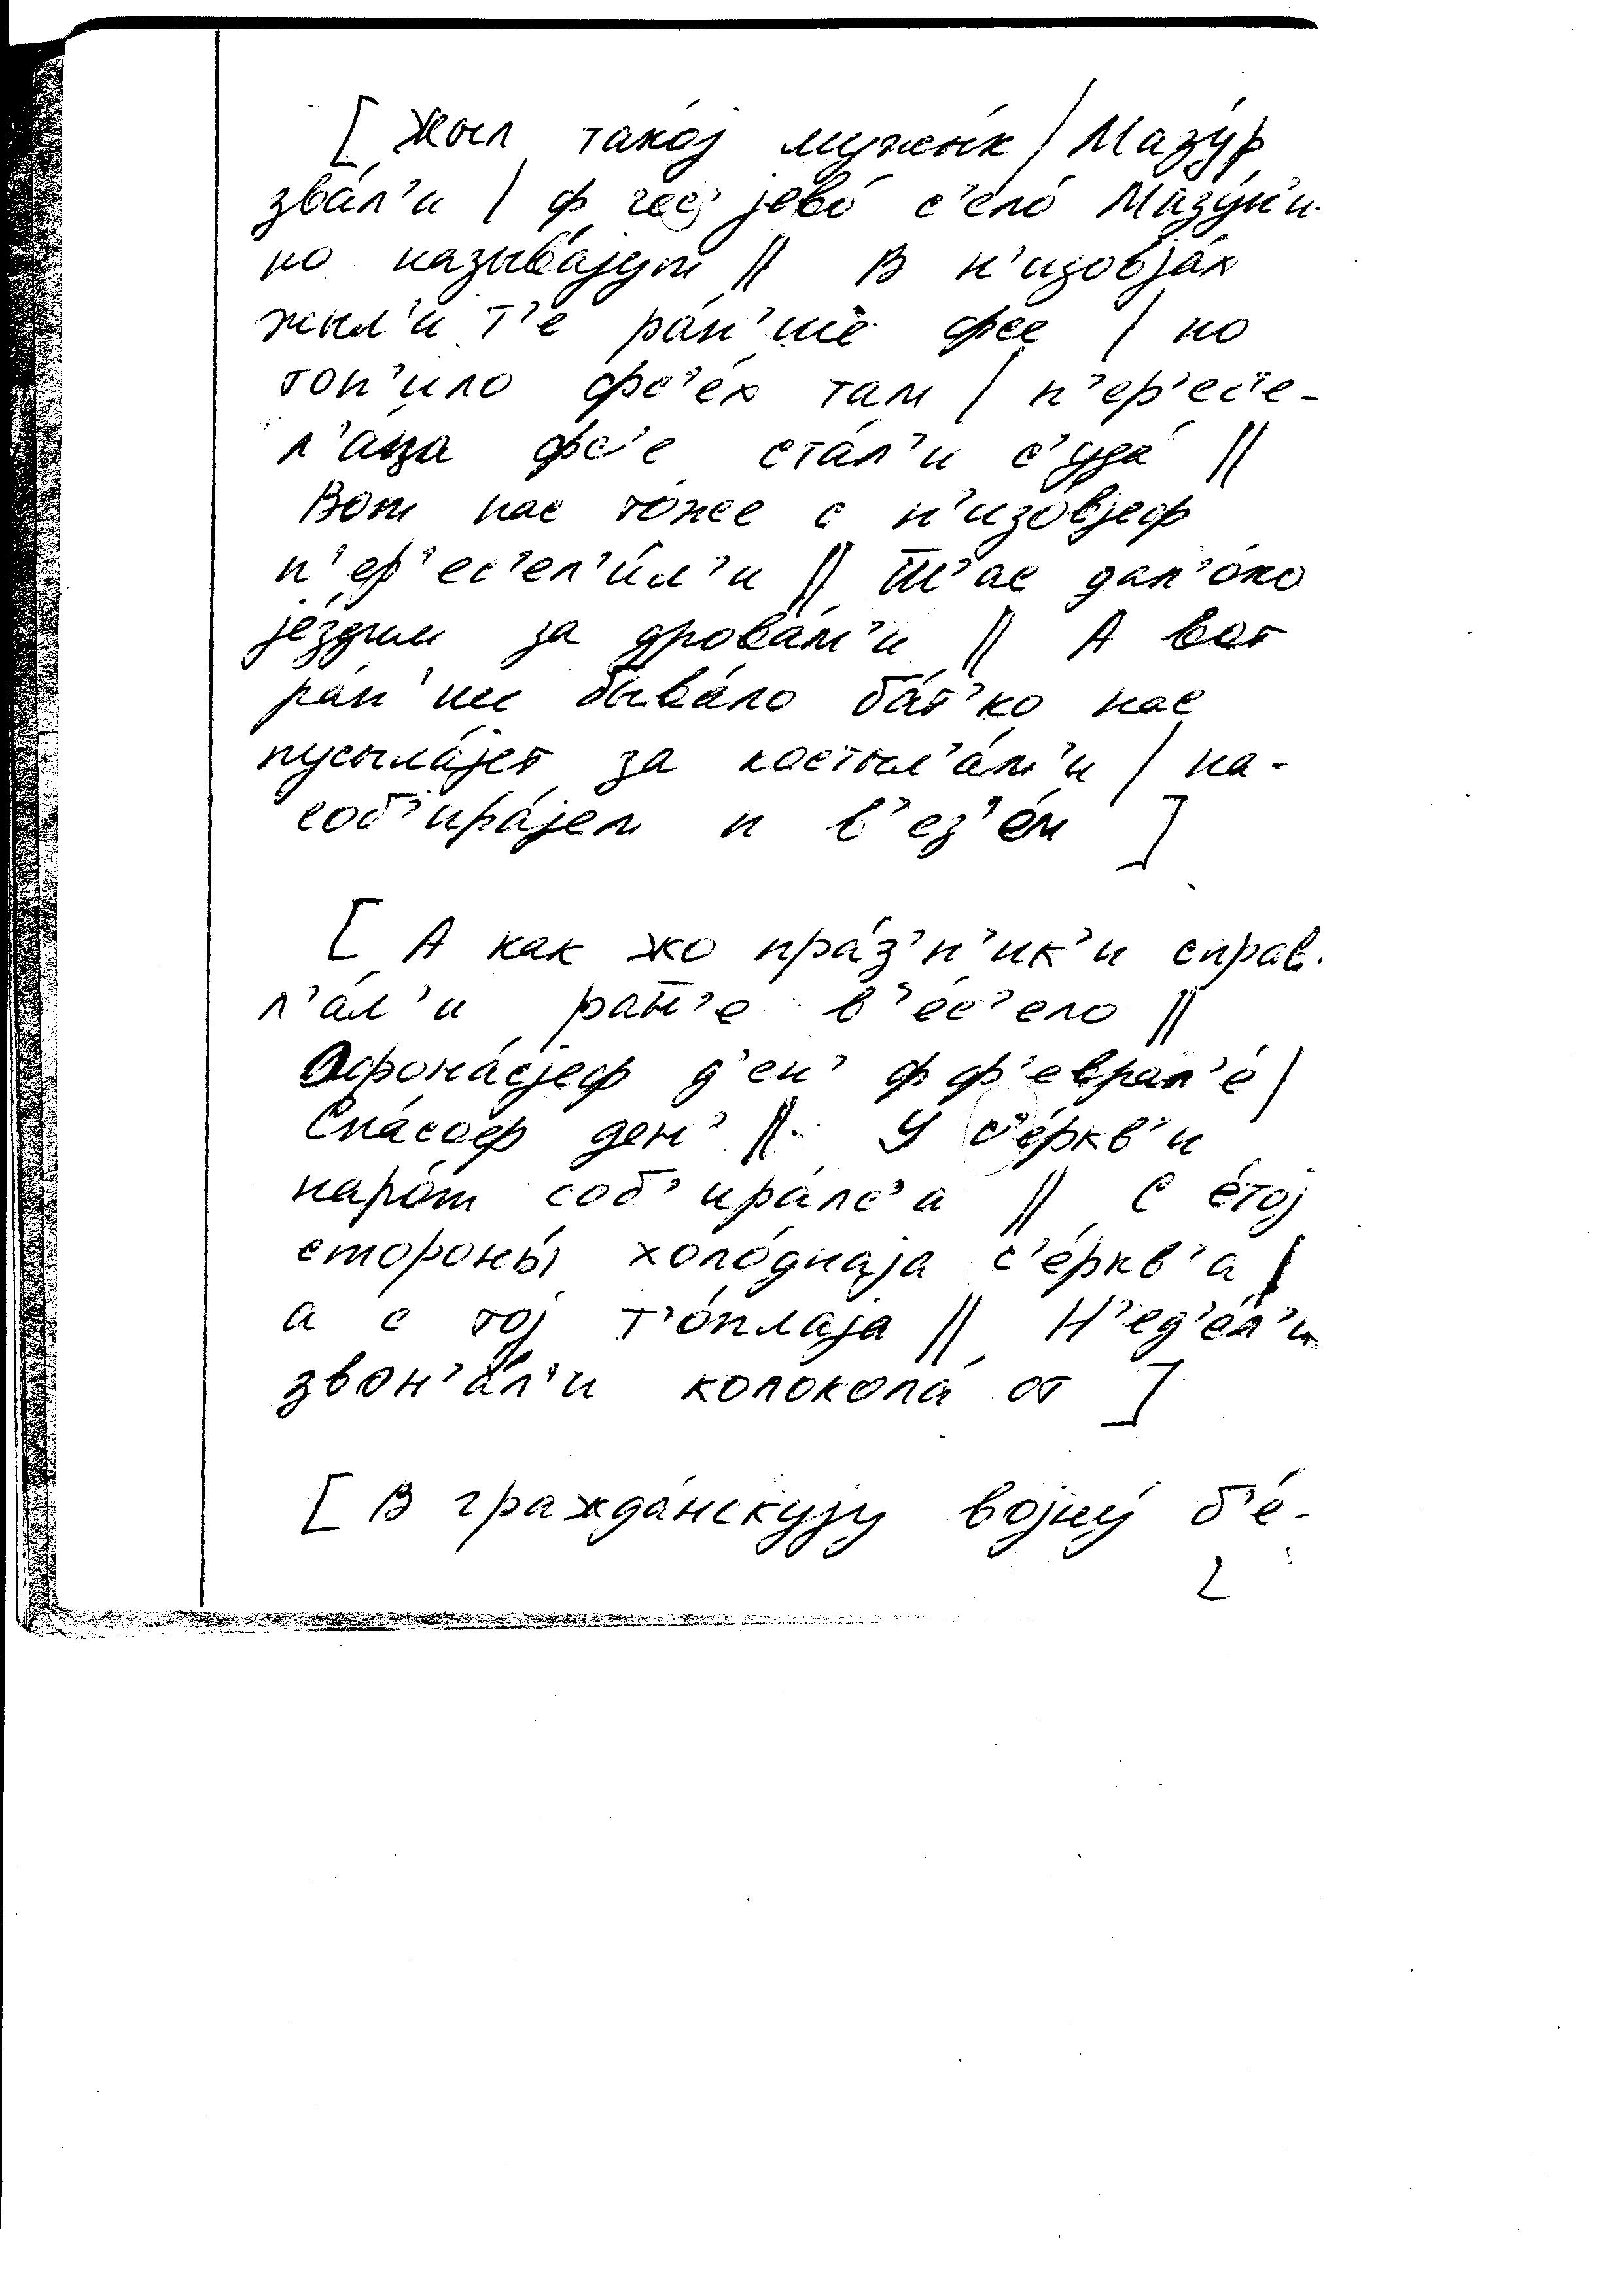 [ Жыл тако́j мужы́к / Мазу́р
зва́л'и / ф чес' jево́ с'ело́ Мазу́н'и-
но называ́jут // В н'изовjа́х
жыл'и т'е ра́н'ше фсе / но
топ'и́ло фс'е́х там / п'ер'ес'е-
л'а́ца фс'е ста́л'и с'уда́ //
Вот нас то́же с н'изо́вjеф
п'ер'ес'ел'и́л'и // Ш'ас дал'о́ко
jе́здим за дрова́м'и // А вот
ра́н'ше быва́ло ба́т'ко нас
пусыла́jет за костыл'а́м'и / на-
соб'ира́jем и в'ез'ём ]
[ А как жо пра́з'н'ик'и справ-
л'а́л'и ран'е в'ес'ело //
Офона́сjеф д'ен' ф ф'еврал'е́ /
Спа́соф ден' // У с'е́ркв'и
наро́т соб'ира́лс'а // С е́тоj
стороны́ холо́днаjа с'е́ркв'а /
а с тоj т'о́плаjа // Н'ед'е́л'и
звон'а́л'и колокола́ от ]
[ В гражда́нскуjу воjну́ б'е́-
2